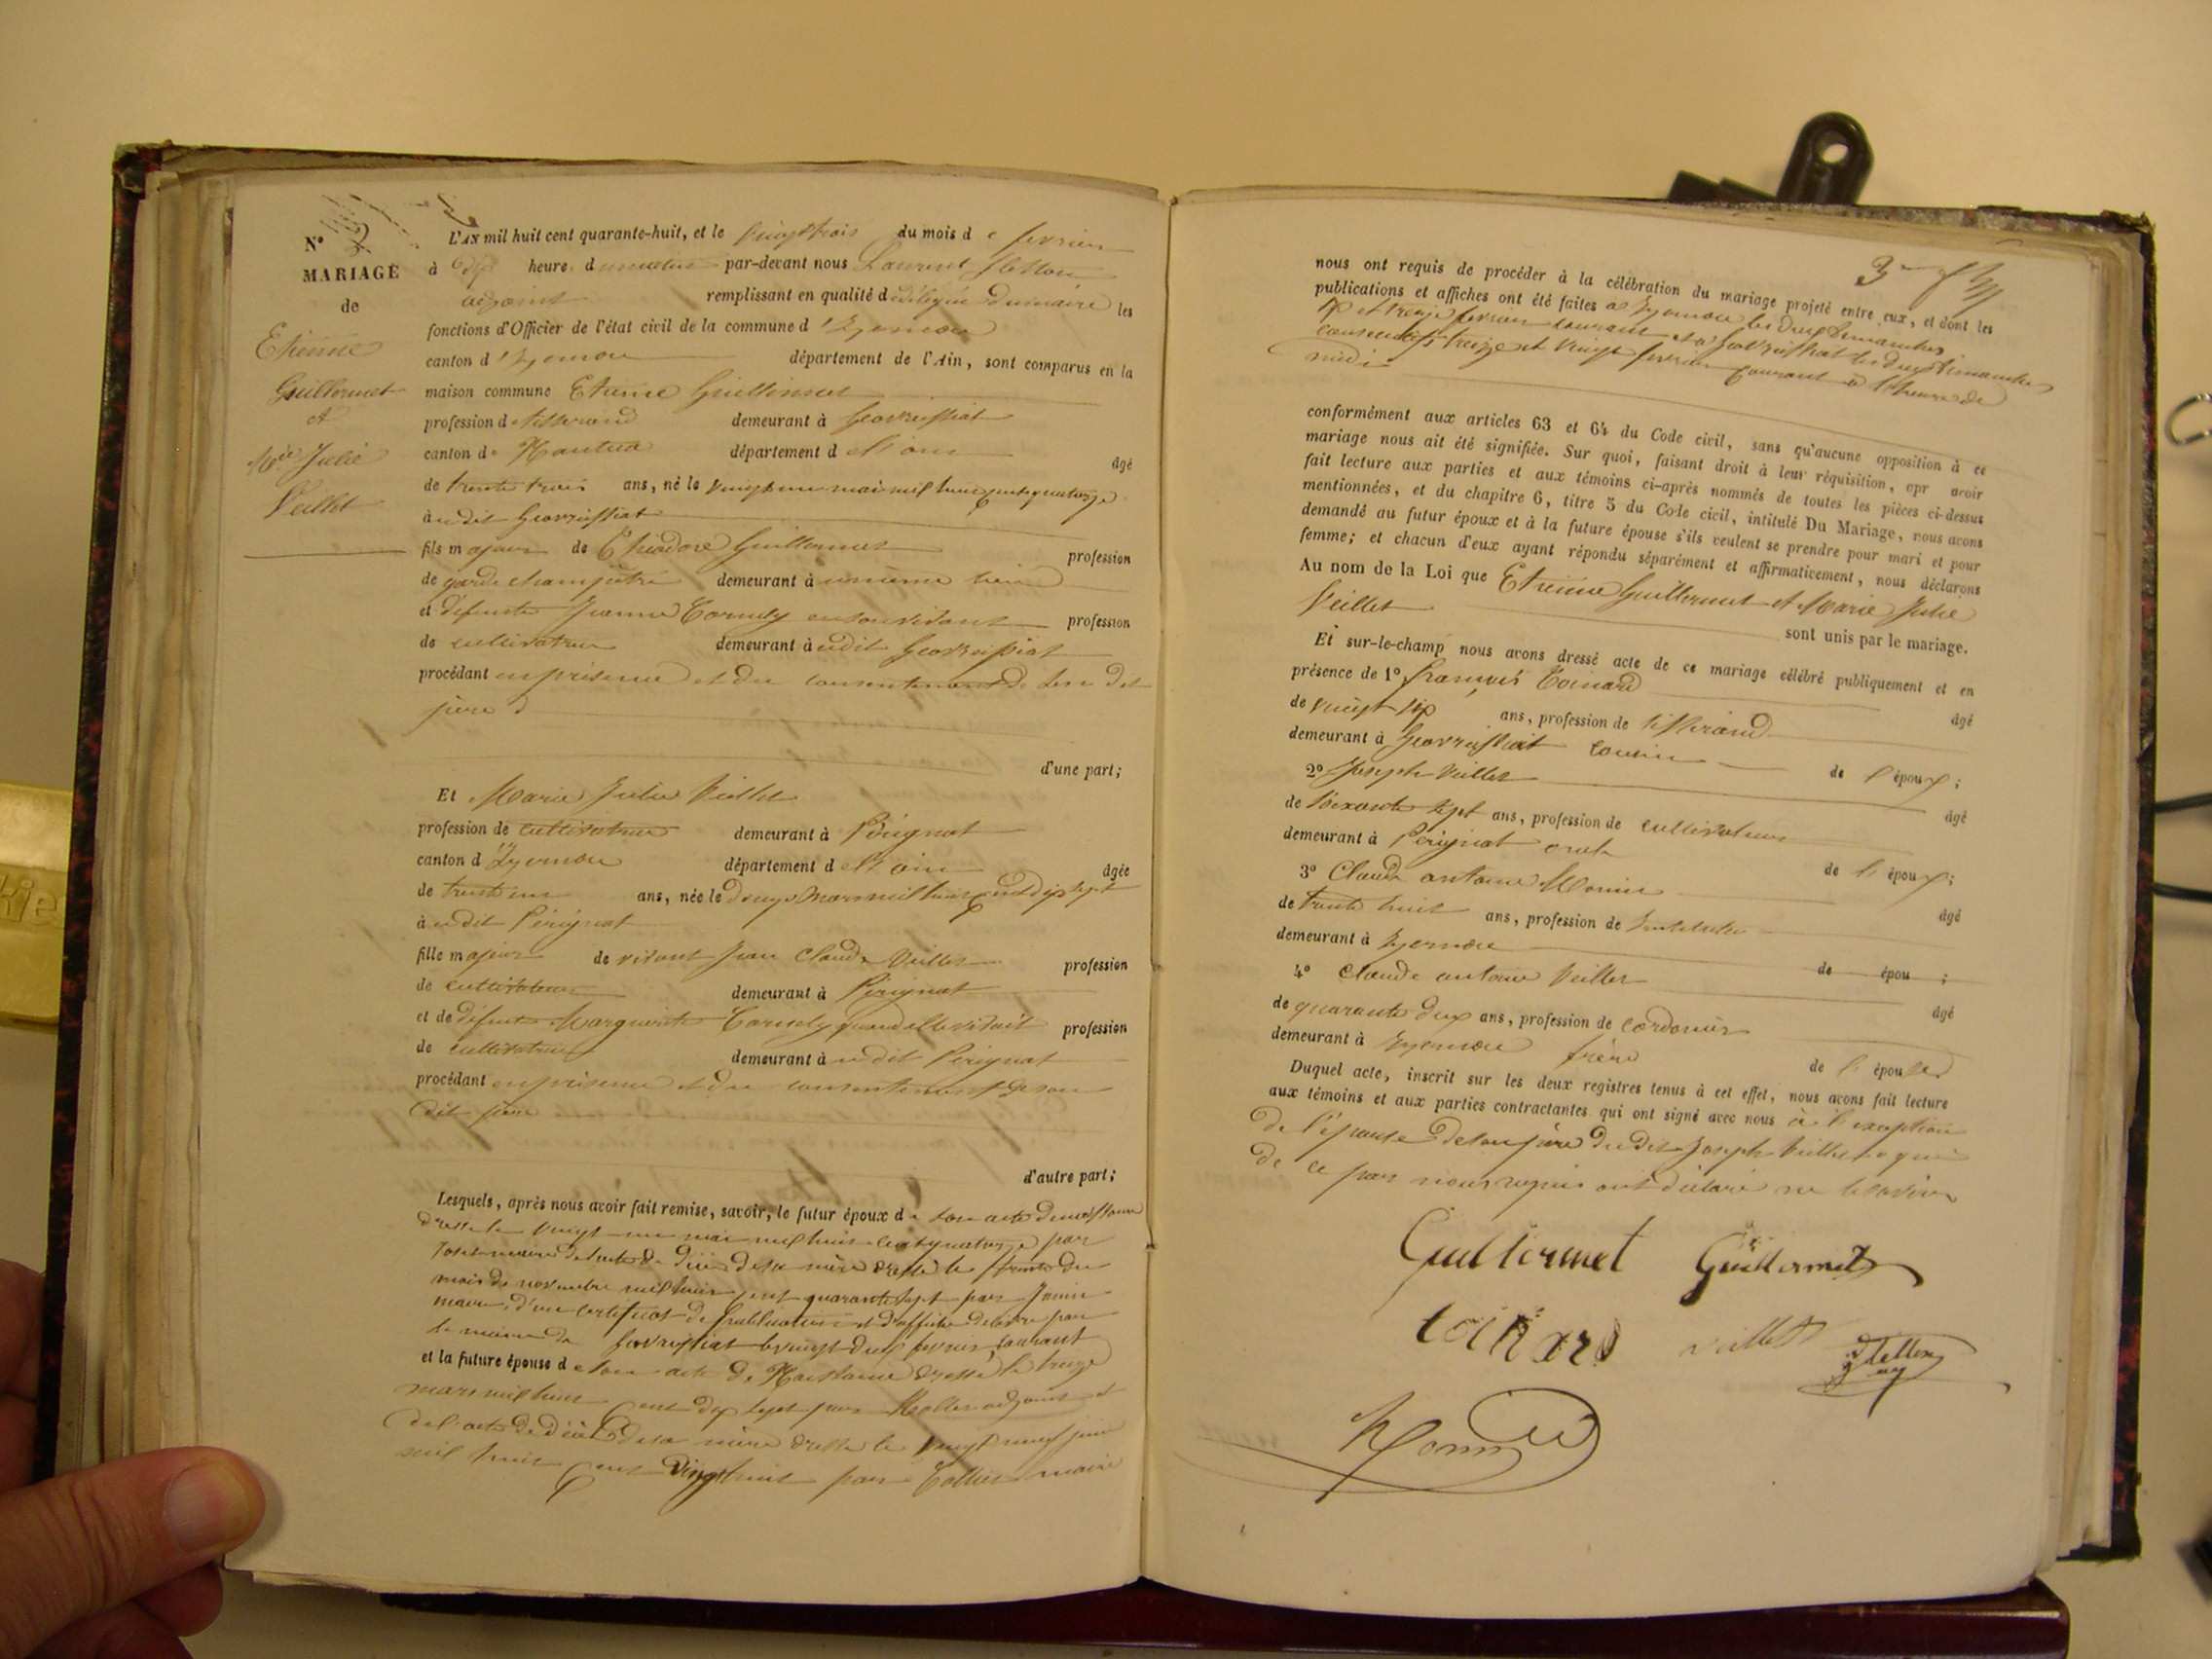 N° 2
MARIAGE
de
Etienne
Guillermet
et
Mie Julie
Veillet
L'AN mil huit cent quarante-huit, et le vingt trois du mois de fevrier
à dix heure du matin par-devant nous Laurent
adjoint remplissant en qualité de délégué du maire les
fonctions d'Officier de l'état civil de la commune d'Izernore
canton d'Izernore département de l'Ain, sont comparus en la
maison commune Etienne Guillermet
profession de tisserand demeurant à Geovreissiat
canton de Nantua département de l'ain âgé
de trente trois ans, né le vingt un mai mil huit cent quatorze
à udit Geovreissiat
fils majeur de Théodore Guillermet profession
de garde champêtre demeurant à u même lieu
et défunte Jeanne en son vivant profession
de cultivatrice demeurant à udit Geovreissiat
procédant en présence et du consentement de son dit
père
d'une part;
Et Marie Julie Veillet
profession de cultivatrice demeurant à Pérignat
canton d'Izernore département de l'ain âgée
de trente un ans, née le douze mars mil huit cent dix sept
à udit Pérignat
fille majeure de vivant Jean Claude Veillet profession
de cultivateur demeurant à Perignat
et de défunte Marguerite quand elle vivait profession
de cultivatrice demeurant à udit Perignat
procédant en présence et du consentement de son
dit père
d'autre part;
Lesquels, après nous avoir fait remise, savoir, le futur époux de son acte de naissance
dressé le vingt un mai mil huit cent quatorze par
maire de l'acte de décès de sa mère dressé le trente du
mois de novembre mil huit cent quarante sept par
maire, d'un certificat de publication et d'affiche délivré par
le maire de Geovreissiat le vingt deux fevrier courant
et la future épouse de son acte de Naissance dressé le treize
mars mil huit cent dix sept par adjoint et
de l'acte de décès de sa mère dressé le vingt neuf juin
mil huit cent vingt huit par maire
nous ont requis de procéder à la célébration du mariage projeté entre eux, et dont les
publications et affiches ont été faites à Izernore les deux dimanches
six et treize fevrier courant et à Geovreissiat les deux dimanches
consécutifs treize et vingt fevrier courant à l'heure de
midi
conformément aux articles 63 et 64 du Code civil, sans qu'aucune opposition à ce
mariage nous ait été signifiée. Sur quoi, faisant droit à leur réquisition, apr avoir
fait lecture aux parties et aux témoins ci-après nommés de toutes les pièces ci-dessus
mentionnées, et du chapitre 6, titre 5 du Code civil, intitulé Du Mariage, nous avons
demandé au futur époux et à la future épouse s'ils veulent se prendre pour mari et pour
femme; et chacun d'eux ayant répondu séparément et affirmativement, nous déclarons
Au nom de la Loi que Etienne Guillermet et Marie Julie
Veillet sont unis par le mariage.
Et sur-le-champ nous avons dressé acte de ce mariage célébré publiquement et en
présence de 1° françois Coinard âgé
de vingt six ans, profession de tisserand
demeurant à Geovreissiat cousin de l'époux;
2° Joseph Veillet âgé
de soixante sept ans, profession de cultivateur
demeurant à Pérignat oncle de l'époux;
3° Claude antoine Monin âgé
de trente huit ans, profession de Instituteur
demeurant à Izernore de épou ;
4° Claude antoine Veillet âgé
de quarante deux ans, profession de cordonnier
demeurant à Izernore frère de l'épouse.
Duquel acte, inscrit sur les deux registres tenus à cet effet, nous avons fait lecture
aux témoins et aux parties contractantes qui ont signé avec nous à l'exception
de l'épouse de son père du dit Joseph Veillet qui
de ce par nous requis ont déclaré ne le savoir
Guillermet Guillermet
coinard veillet
Monin